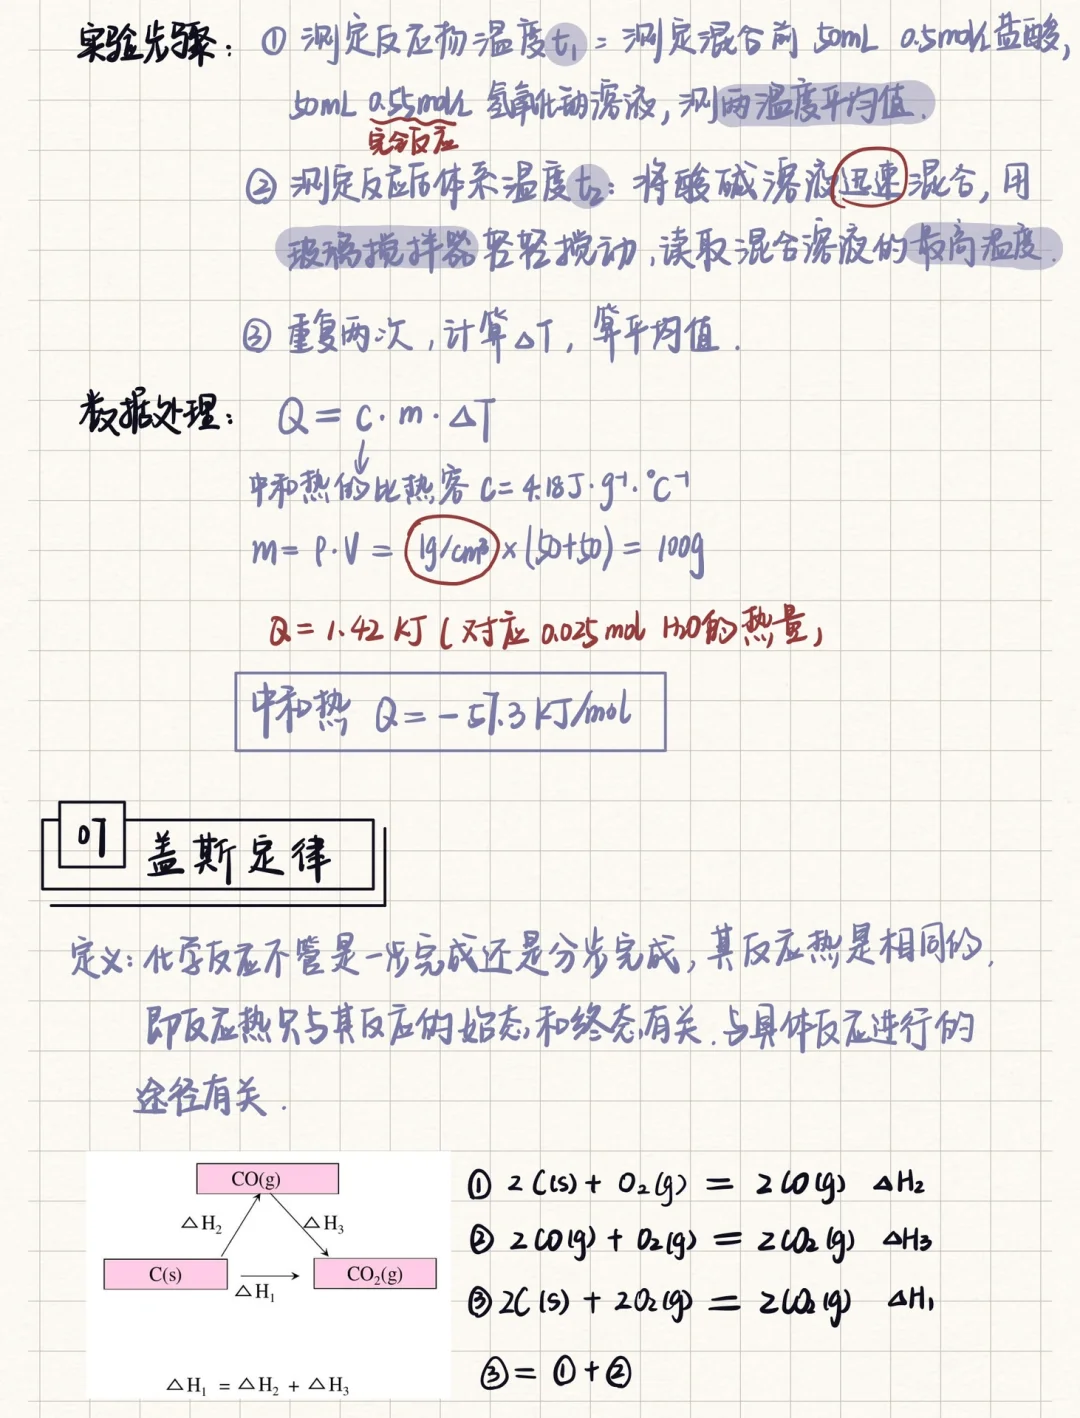 实验步骤：① 测定反应物温度t₁：测定混合前 50mL 0.5mol/L盐酸，
50mL 0.55mol/L 氢氧化钠溶液，测两温度平均值.
完全反应
② 测定反应后体系温度t₂：将酸碱溶液迅速混合，用
玻璃搅拌器轻轻搅动，读取混合溶液的最高温度.
③ 重复两次，计算△T，算平均值.
数据处理： Q = c · m · △T
中和热的比热容 C = 4.18J·g⁻¹·℃⁻¹
m = ρ·V = 1g/cm³ × (50+50) = 100g
Q = 1.42 KJ (对应 0.025 mol H₂O的热量)
中和热 Q = -57.3 KJ/mol
07 盖斯定律
定义：化学反应不管是一步完成还是分步完成，其反应热是相同的.
即反应热只与其反应的始态和终态有关.与具体反应进行的
途径有关.
CO(g)
△H₂ △H₃
C(s) △H₁ CO₂(g)
△H₁ = △H₂ + △H₃
① 2C(s) + O₂(g) = 2CO(g) △H₂
② 2CO(g) + O₂(g) = 2CO₂(g) △H₃
③ 2C(s) + 2O₂(g) = 2CO₂(g) △H₁
③ = ① + ②